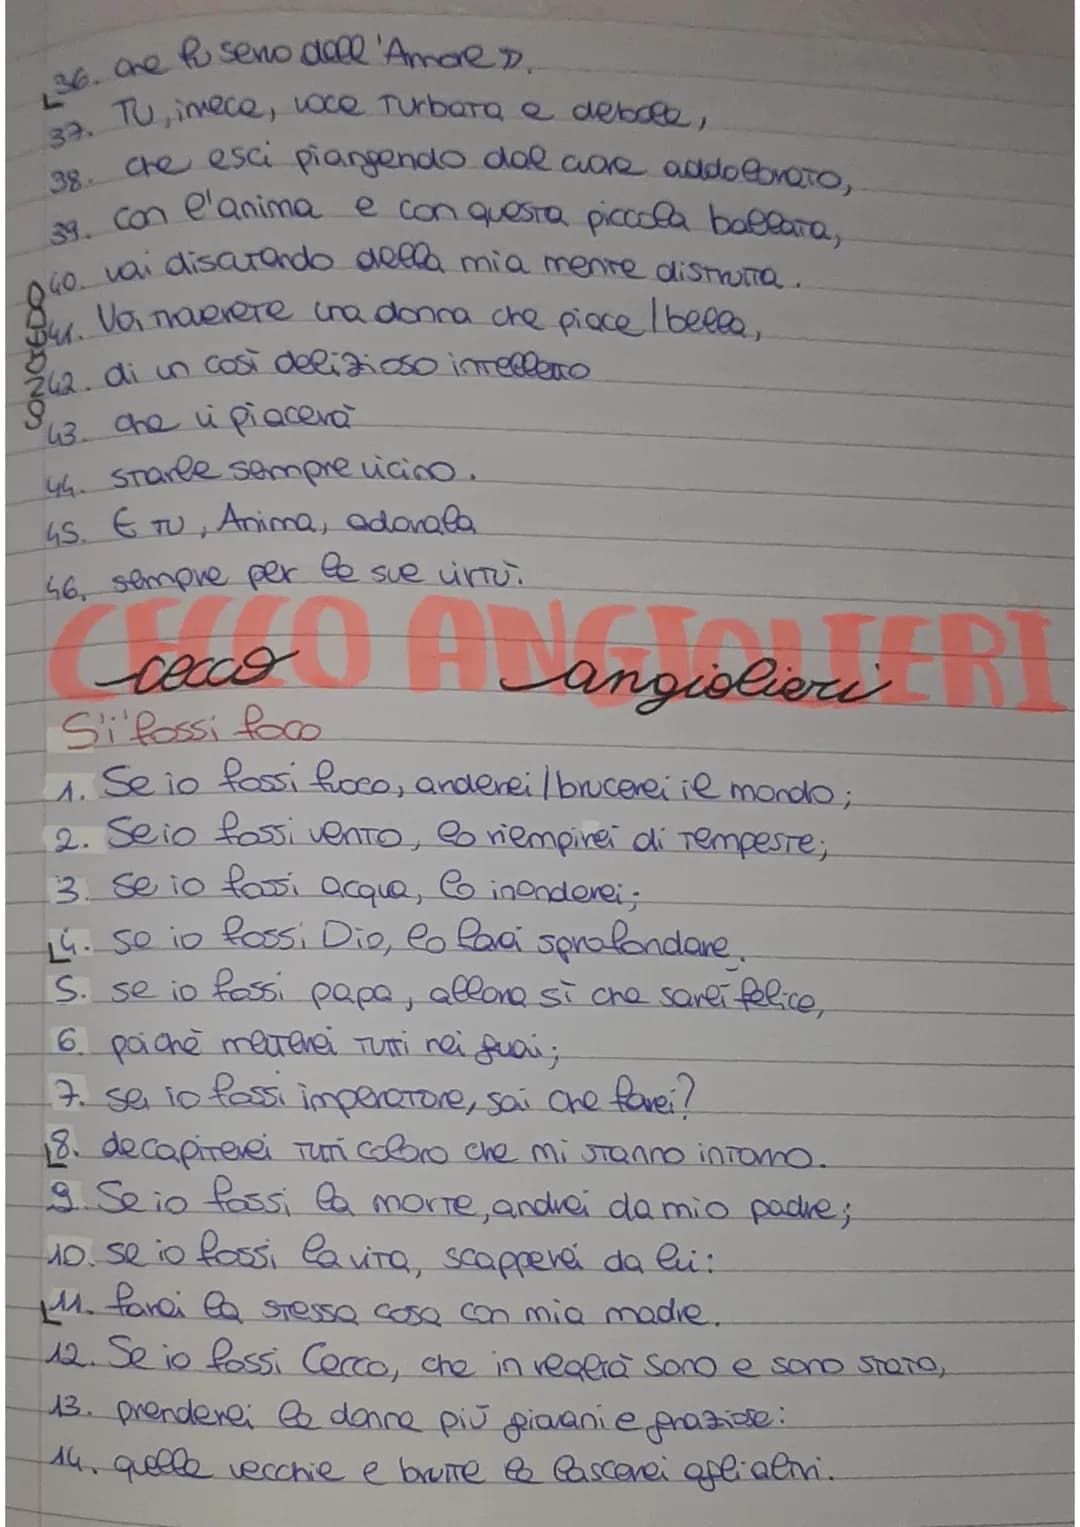 36. che fu servo dall'Amore».
37. Tu, invece, voce turbata e debole,
38. che esci piangendo dal cuore addolorato,
39. con l'anima e con questa piccola ballata,
40. vai discutendo della mia mente distrutta.
41. Voi troverete una donna che piace / bella,
42. di un così delizioso intelletto
43. che vi piacerà
44. starle sempre vicino.
45. E tu, Anima, adorala
46. sempre per le sue virtù.
CONGEDO
CECCO ANGIOLIERI
cecco angiolieri
S'i' fossi foco
1. Se io fossi fuoco, anderei / brucerei il mondo;
2. Se io fossi vento, lo riempirei di tempeste;
3. se io fossi acqua, lo inonderei;
4. se io fossi Dio, lo farei sprofondare.
5. se io fossi papa, allora sì che sarei felice,
6. poichè metterei tutti nei guai;
7. se io fossi imperatore, sai che farei?
8. decapiterei tutti coloro che mi stanno intorno.
9. Se io fossi la morte, andrei da mio padre;
10. se io fossi la vita, scapperei da lui:
11. farei la stessa cosa con mia madre.
12. Se io fossi Cecco, che in realtà sono e sono stato,
13. prenderei le donne più giovani e graziose:
14. quelle vecchie e brutte le lascerei agli altri.